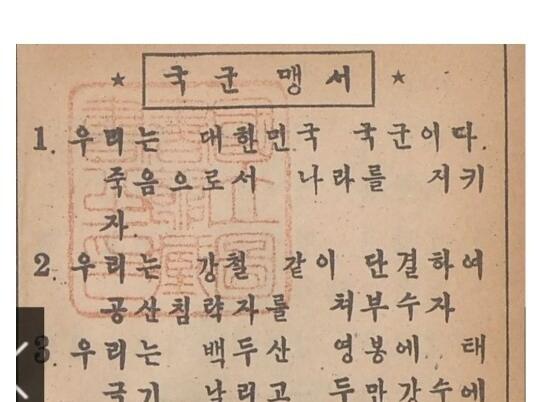 ★ 국군맹서 ★
1. 우리는 대한민국 국군이다.
죽음으로서 나라를 지키
자.
2. 우리는 강철 같이 단결하여
공산침략자를 쳐부수자
3. 우리는 백두산 영봉에 태
극기 날리고 두만강수에